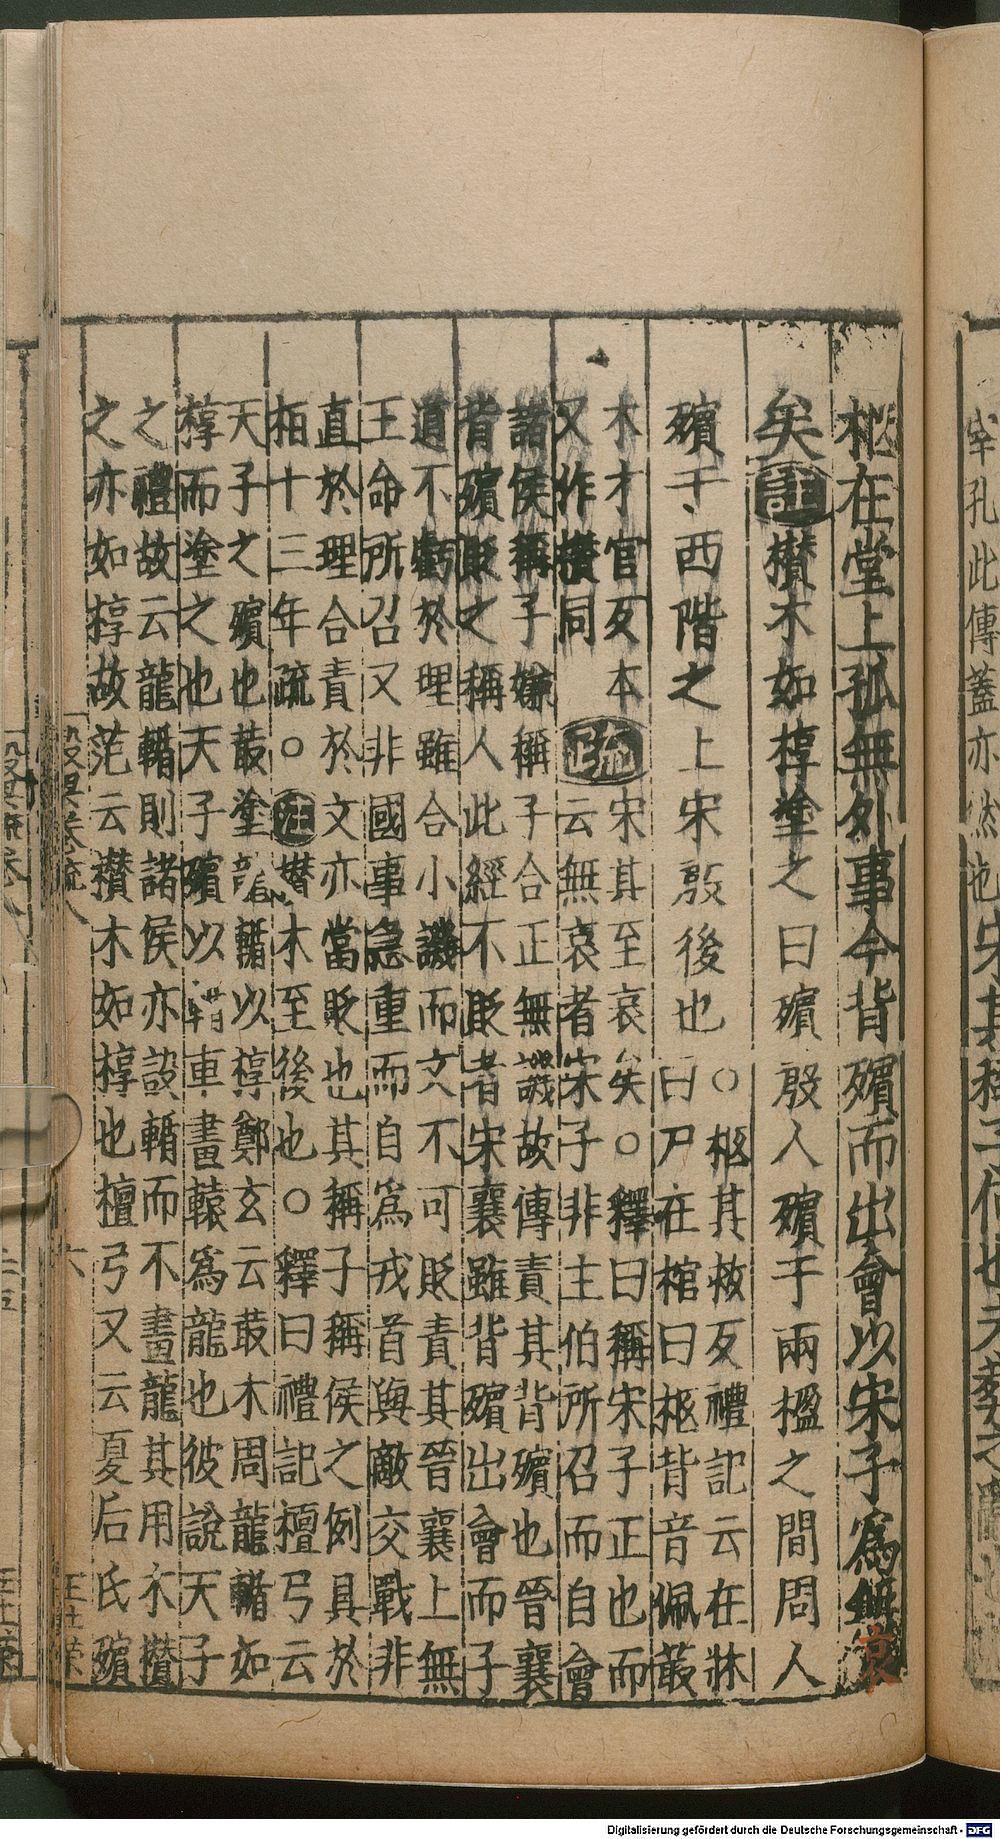 柩在堂上孤無外事今背殯而出會以宋子爲無哀
矣註欑木如椁塗之曰殯殷人殯于兩楹之間周人
殯于西階之上宋殷後也○柩其救反禮記云在牀
曰尸在棺曰柩背音佩叢
木才官反本
又作欑同
疏
宋其至哀矣○釋曰稱宋子正也而
云無哀者宋子非主伯所召而自會
諸侯稱子嫌稱子合正無譏故傳責其背殯也晉襄
背殯貶之稱人此經不貶者宋襄雖背殯出會而子
道不虧於理雖合小譏而文不可貶責其晉襄上無
王命所召又非國事急重而自爲戎首與敵交戰非
直於理合責於文亦當貶也其稱子稱侯之例具於
桓十三年疏○註欑木至後也○釋曰禮記檀弓云
天子之殯也菆塗龍輴以椁鄭玄云菆木周龍輴如
椁而塗之也天子殯以輴車畫轅爲龍也彼說天子
之禮故云龍輴則諸侯亦設輴而不畫龍其用木欑
之亦如椁故范云欑木如椁也檀弓又云夏后氏殯
榖梁卷疏八
六
Digitalisierung gefördert durch die Deutsche Forschungsgemeinschaft - DFG